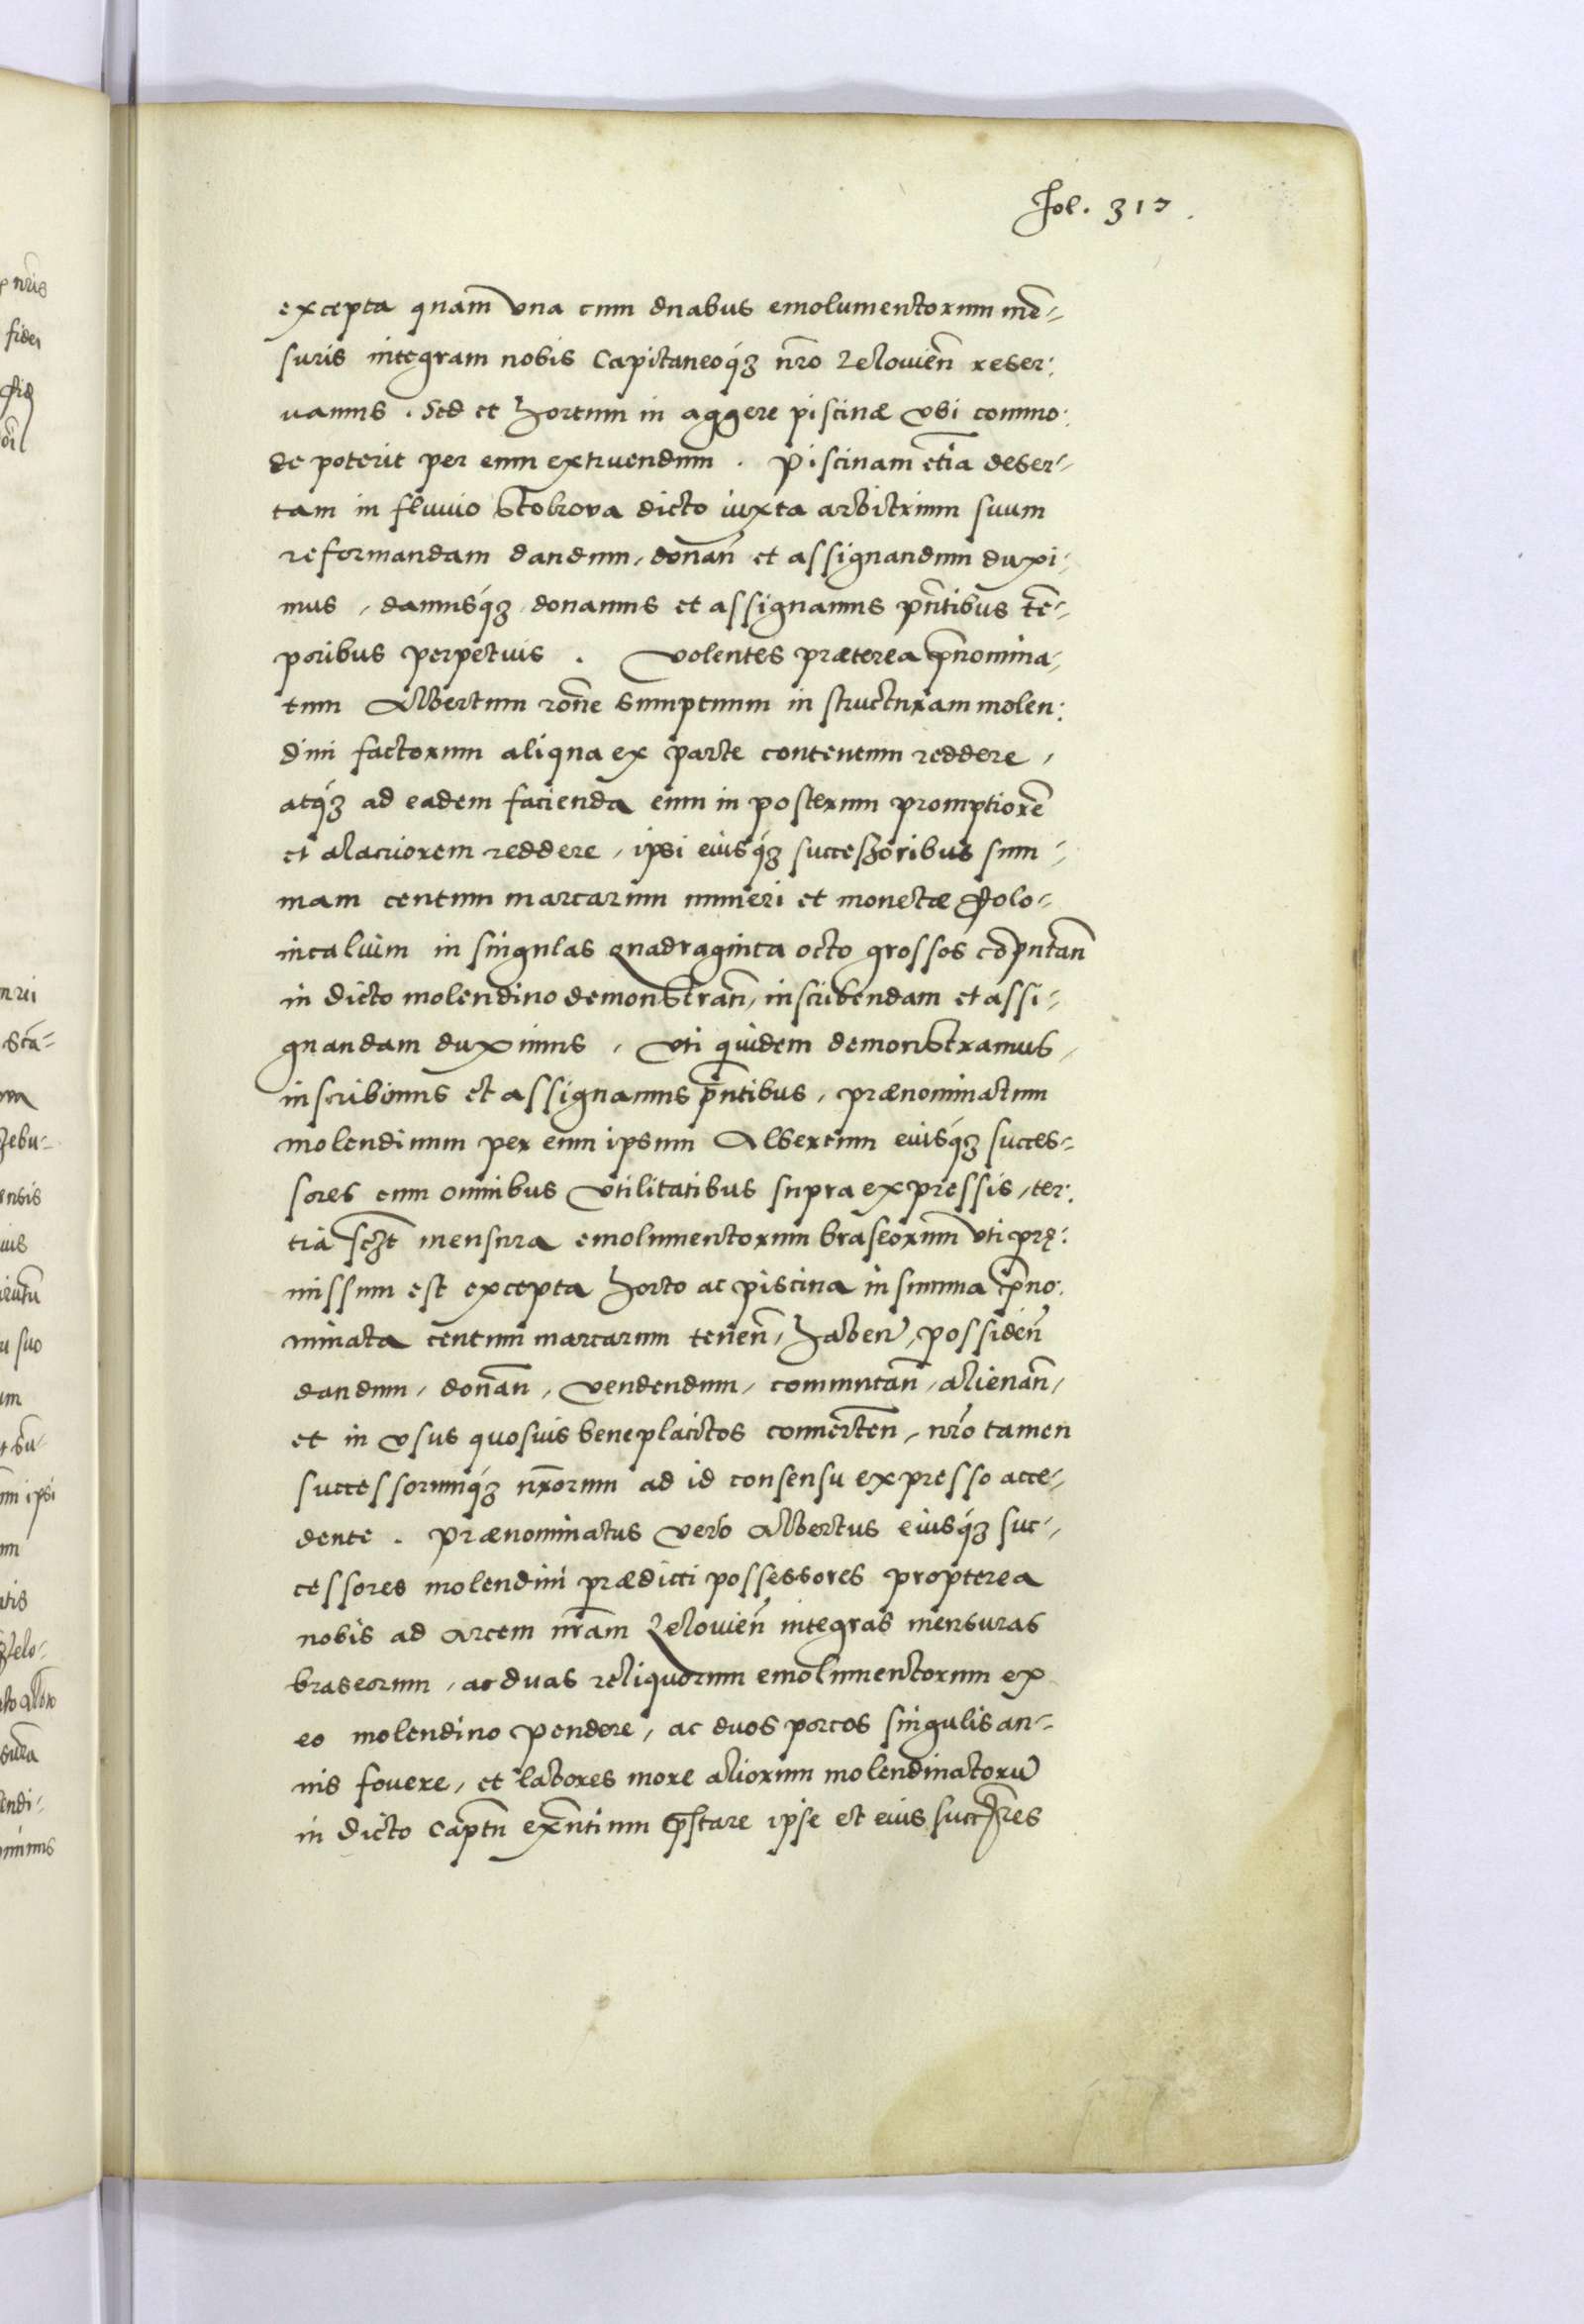 fol. 317.
excepta quam vna cum duabus emolumentorum mē-
suris integram nobis Capitaneoq́ȝ nr̄o Zelowień reser:
uamus. Sed et hortum in aggere piscinæ vbi commo:
de poterit per eum extruendum. Piscinam etiā deser-
tam in fluuio Stobrova dicto iuxta arbitrium suum
reformandam dandum, donań et assignandum duxi:
mus, damusq́ȝ donamus et assignamus pn̄tibus tē-
poribus perpetuis. Volentes præterea p̄nomina-
tum Albertum rōne sumptuum in structuram molen:
dini factorum aliqua ex parte contentum reddere,
atq́ȝ ad eadem facienda eum in posterum promptiorē
et alacriorem reddere, ipsi eiusq́ȝ successoribus sum-
mam centum marcarum numeri et monetæ Polo-
nicaluim in singulas quadraginta octo grossos cōputań
in dicto molendino demonstrań, inscribendam et assi-
gnandam duximus, vti quidem demonstramus,
inscribimus et assignamus pn̄tibus, prænominatum
molendinum per eum ipsum Albertum eiusq́ȝ succes-
sores cum omnibus vtilitatibus supra expressis, ter:
tia sczt mensura emolumentorum braseorum vti prę:
missum est excepta horto ac piscina in summa p̄no:
minata centum marcarum tenen̄, haben̄, possiden̄
dandum, donan̄, vendendum, commutan̄, alienan̄,
et in vsus quosuis beneplacitos conuerten̄, nr̄o tamen
successorumq́ȝ nr̄orum ad id consensu expresso acce-
dente. Prænominatus vero Albertus eiusq́ȝ suc-
cessores molendini prædicti possessores propterea
nobis ad arcem nr̄am Zelowien̄ integras mensuras
braseorum, ac duas reliquorum emolumentorum ex
eo molendino pendere, ac duos porcos singulis an-
nis fouere, et labores more aliorum molendinatorū
in dicto Captn̄ exn̄tium p̄stare ipse et eius succr̄es